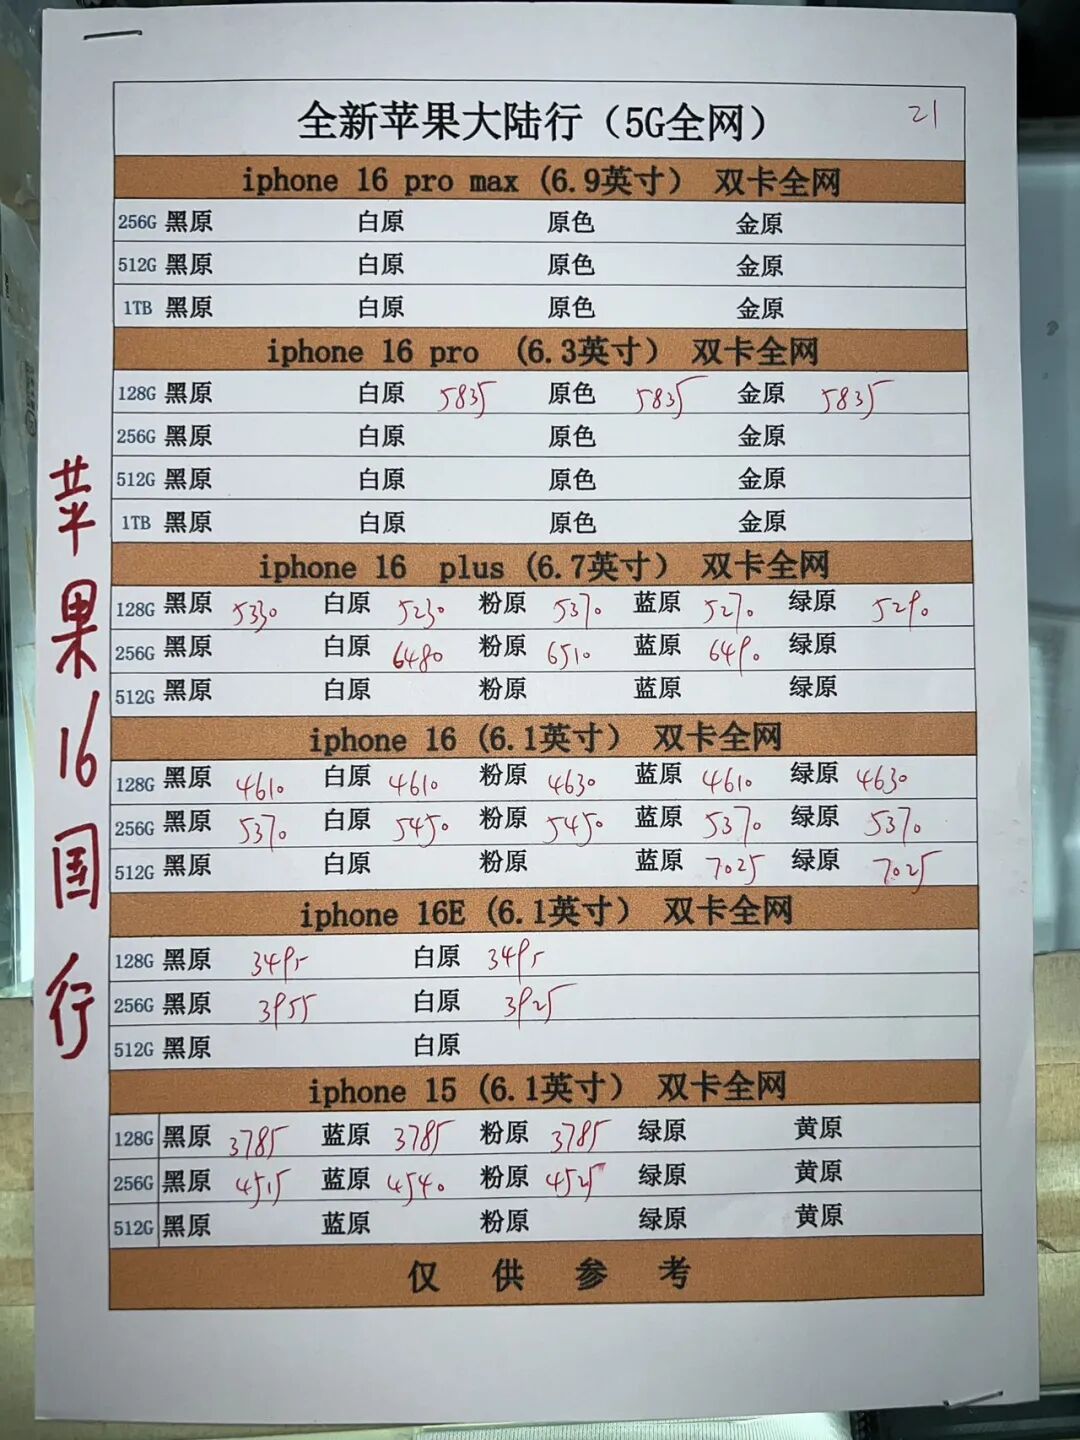 全新苹果大陆行（5G全网） 21
iphone 16 pro max (6.9英寸） 双卡全网
256G 黑原 白原 原色 金原
512G 黑原 白原 原色 金原
1TB 黑原 白原 原色 金原
iphone 16 pro （6.3英寸） 双卡全网
128G 黑原 白原 5835 原色 5835 金原 5835
256G 黑原 白原 原色 金原
512G 黑原 白原 原色 金原
1TB 黑原 白原 原色 金原
iphone 16 plus (6.7英寸） 双卡全网
128G 黑原 5330 白原 5230 粉原 5370 蓝原 5270 绿原 5290
256G 黑原 白原 6480 粉原 6510 蓝原 6490 绿原
512G 黑原 白原 粉原 蓝原 绿原
iphone 16 (6.1英寸） 双卡全网
128G 黑原 4610 白原 4610 粉原 4630 蓝原 4610 绿原 4630
256G 黑原 5370 白原 5450 粉原 5450 蓝原 5370 绿原 5370
512G 黑原 白原 粉原 蓝原 7025 绿原 7025
iphone 16E (6.1英寸） 双卡全网
128G 黑原 3495 白原 3495
256G 黑原 3955 白原 3925
512G 黑原 白原
iphone 15 (6.1英寸） 双卡全网
128G 黑原 3785 蓝原 3785 粉原 3785 绿原 黄原
256G 黑原 4515 蓝原 4540 粉原 4525 绿原 黄原
512G 黑原 蓝原 粉原 绿原 黄原
仅供参考
苹果16国行